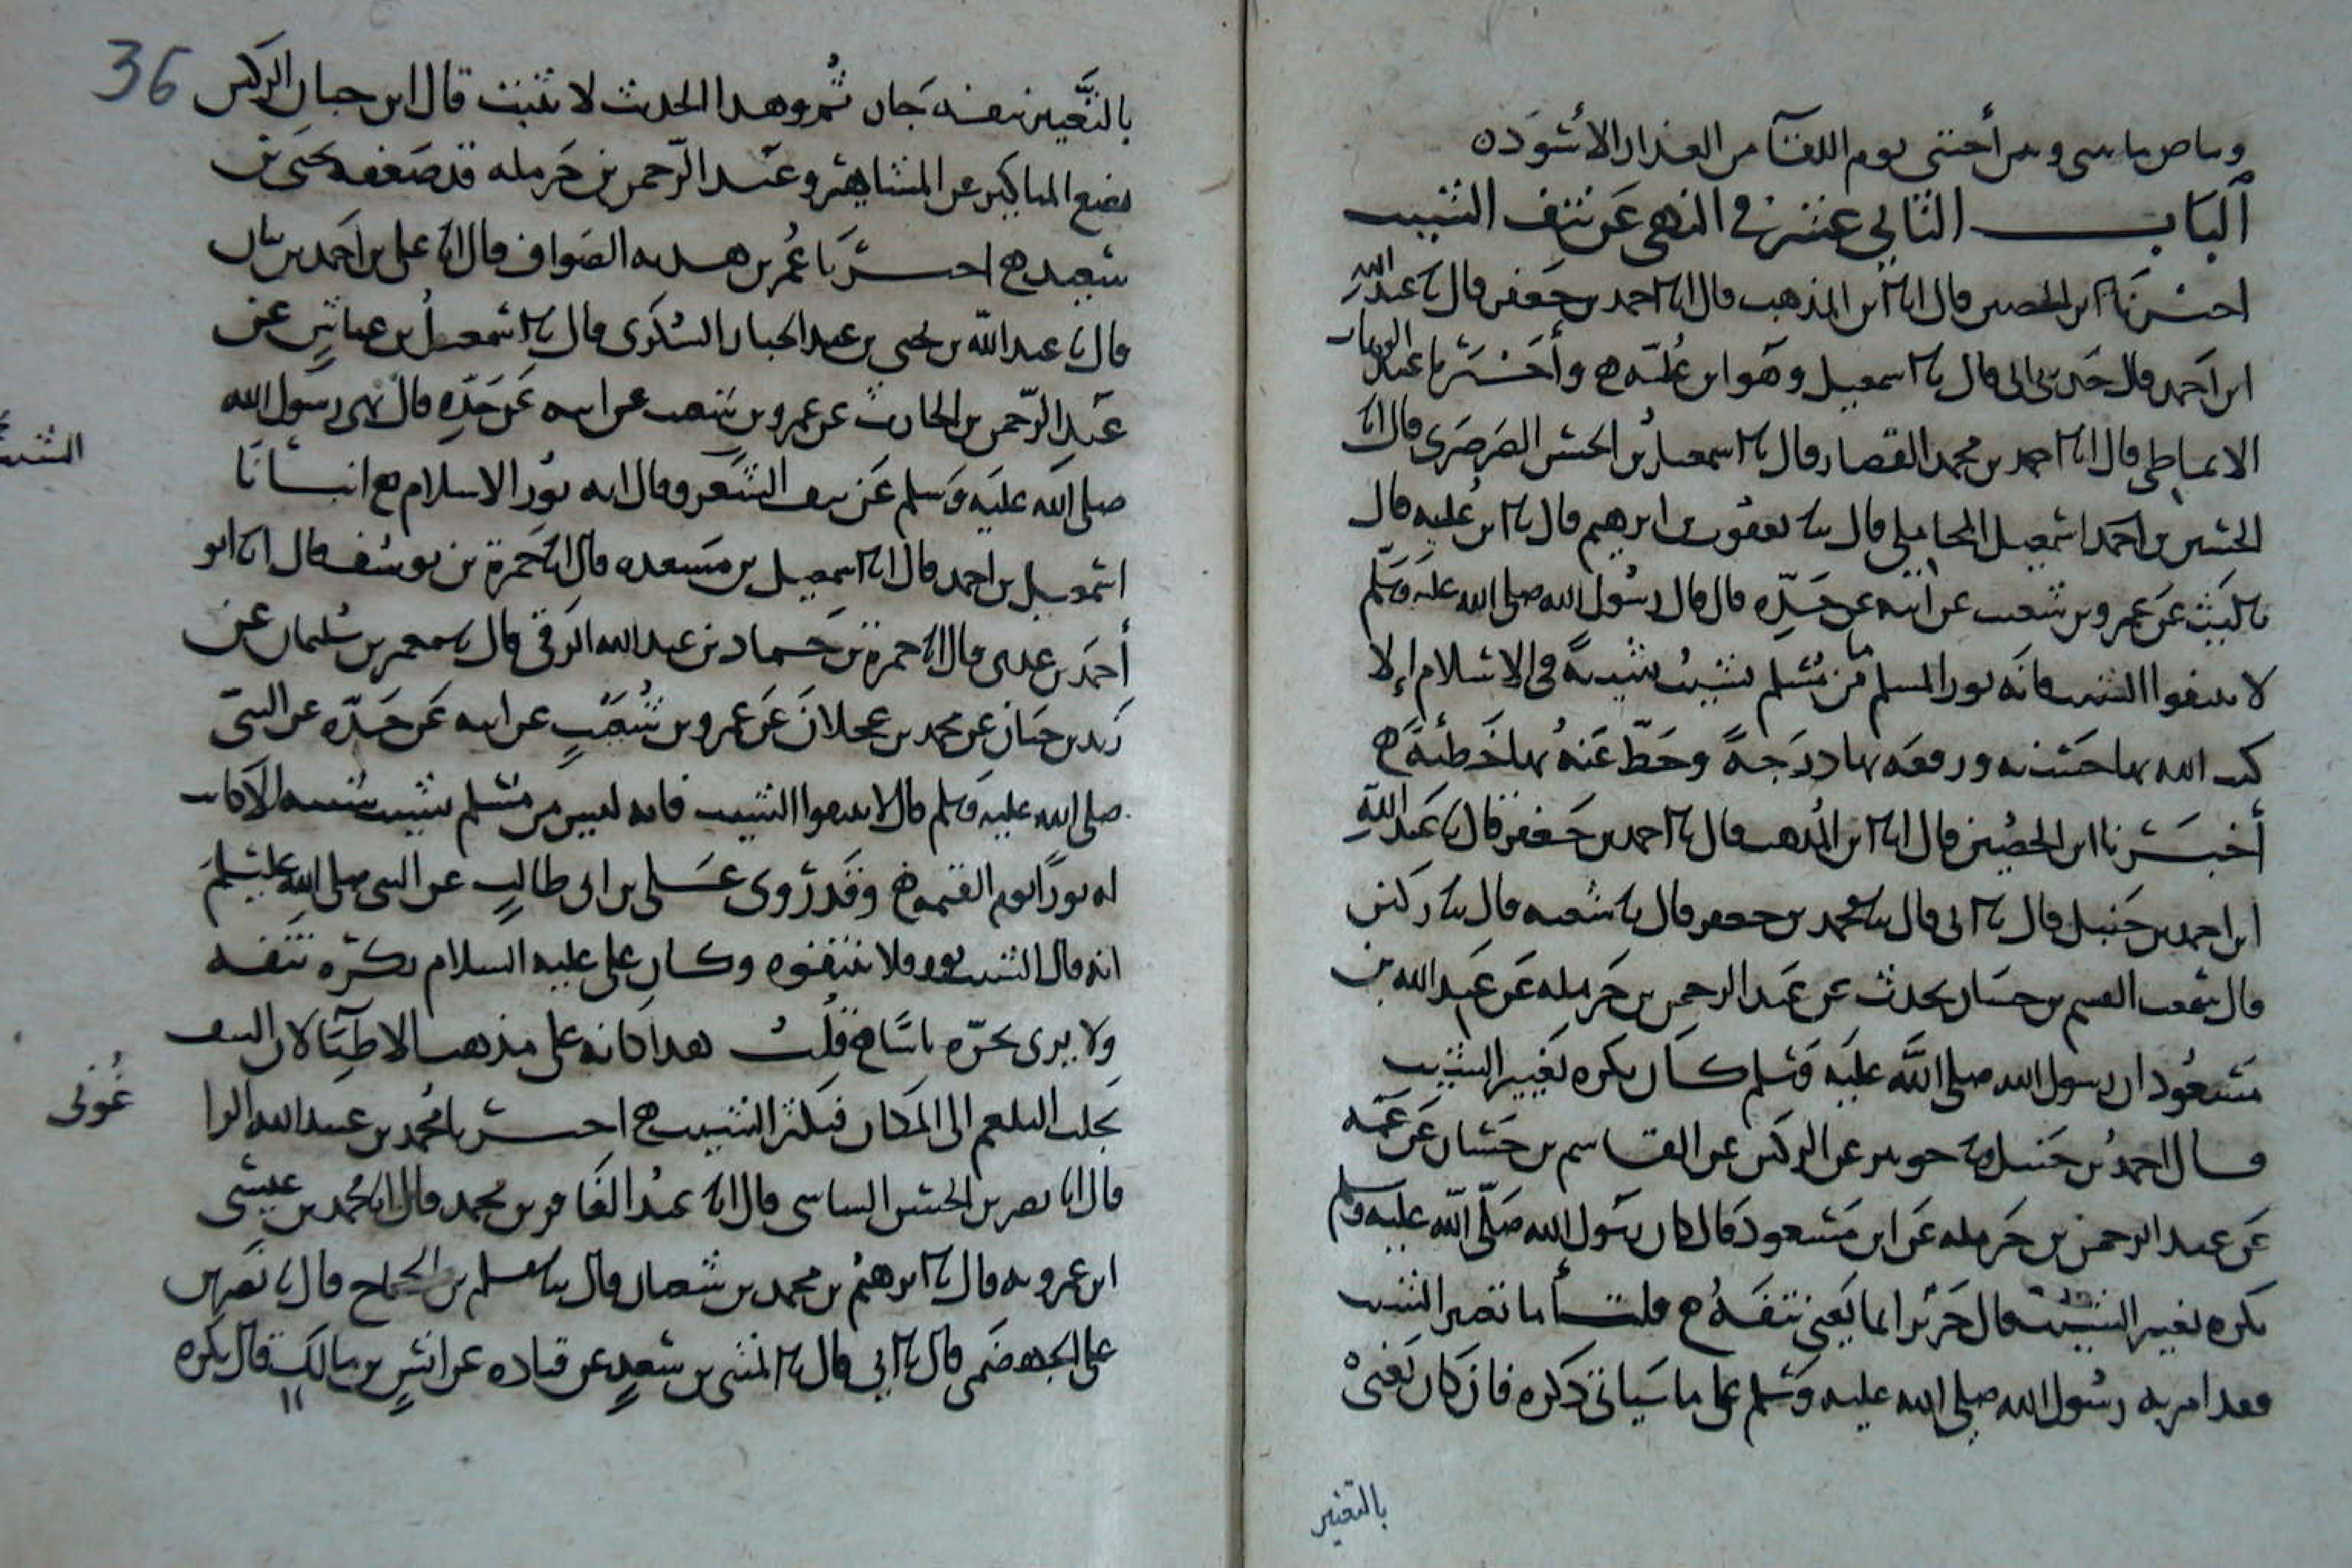 وباض يا سي ومن أحبتي يوم اللقآ من العذار الأسود ه
ألباب الثاني عشر في النهي عن نتف الشيب
اخبرنا ابن الحصين قال انا ابن المذهب قال انا احمد بن جعفر قال نا عبد الله
ابن احمد قال حدثني ابي قال نا اسمعيل وهو ابن علية ح وأخبرنا عبد الوهاب
الانماطي قال انا احمد بن محمد القصار قال نا اسمعيل بن الحسن الصرصري قال انا
الحسين بن احمد اسمعيل المحاملي قال نا يعقوب بن ابرهيم قال نا ابن علية قال
نا ليث عن عمرو بن شعيب عن أبيه عن جده قال قال رسول الله صلى الله عليه وسلم
لا تنتفوا الشيب فانه نور المسلم ما من مسلم يشيب شيبة في الاسلام إلا
كتب الله بها حسنه ورفعه بها درجة وحط عنه بها خطيئة ح
أخبرنا ابن الحصين قال انا ابن المذهب قال نا احمد بن جعفر قال نا عبد الله
ابن احمد بن حنبل قال نا ابي قال نا محمد بن جعفر قال نا شعبه قال نا ركين
قال سمعت القسم بن حسان يحدث عن عبد الرحمن بن حرمله عن عبد الله بن
مسعود ان رسول الله صلى الله عليه وسلم كان يكره تغيير الشيب
قال احمد بن حنبل نا جرير عن الركين عن القاسم بن حسان عن عمه
عن عبد الرحمن بن حرمله عن ابن مسعود قال كان رسول الله صلى الله عليه وسلم
يكره تغيير الشيب قال جرير انما يعني نتفه ح قلت أما تغيير الشيب
فقد امر به رسول الله صلى الله عليه وسلم على ما سياتي ذكره فان كان يعني
بالتغيير
36
بالتغيير نتفه جاز ثم وهذا الحديث لا يثبت قال ابن حبان الركين
يضع المناكير عن المشاهير وعبد الرحمن بن حرمله قد ضعفه يحيى بن
سعيد ح اخبرنا عمر بن هديه الصواف قال انا علي بن احمد بن بيان
قال نا عبد الله بن يحيى بن عبد الجبار السكري قال نا اسمعيل بن عياش عن
عبد الرحمن بن الحارث عن عمرو بن شعيب عن ابيه عن جده قال نهى رسول الله
صلى الله عليه وسلم عن نتف الشعر وقال انه نور الاسلام ح انبأنا
الشيب
اسمعيل بن احمد قال انا اسمعيل بن مسعده قال انا حمزة بن يوسف قال انا ابو
أحمد بن عدي قال انا حمزة بن حماد بن عبد الله الرقي قال نا معمر بن سليمان عن
زيد بن حبان عن محمد بن عجلان عن عمرو بن شعيب عن ابيه عن جده عن النبي
صلى الله عليه وسلم قال لا تنتفوا الشيب فانه ليس من مسلم يشيب شيبه الا كانت
له نورا يوم القيمه ح وقد روى علي بن ابي طالب عن النبي صلى الله عليه وسلم
انه قال الشيب نور فلا تنتفوه وكان علي عليه السلام يكره نتفه
ولا يرى بجزه باسا ح قلت هذا كانه على مذهب الاطبآ لان النتف
يجلب البلغم الى المكان فيكثر الشيب ح اخبرنا محمد بن عبيد الله الزا
غوني
قال انا نصر بن الحسن الشاشي قال انا عبد الغافر بن محمد قال انا محمد بن عيسى
ابن عمرويه قال نا ابرهيم بن محمد بن سفيان قال نا مسلم بن الحجاج قال نا نصر بن
علي الجهضمي قال نا ابي قال نا المثنى بن سعيد عن قتاده عن انس بن مالك قال يكره